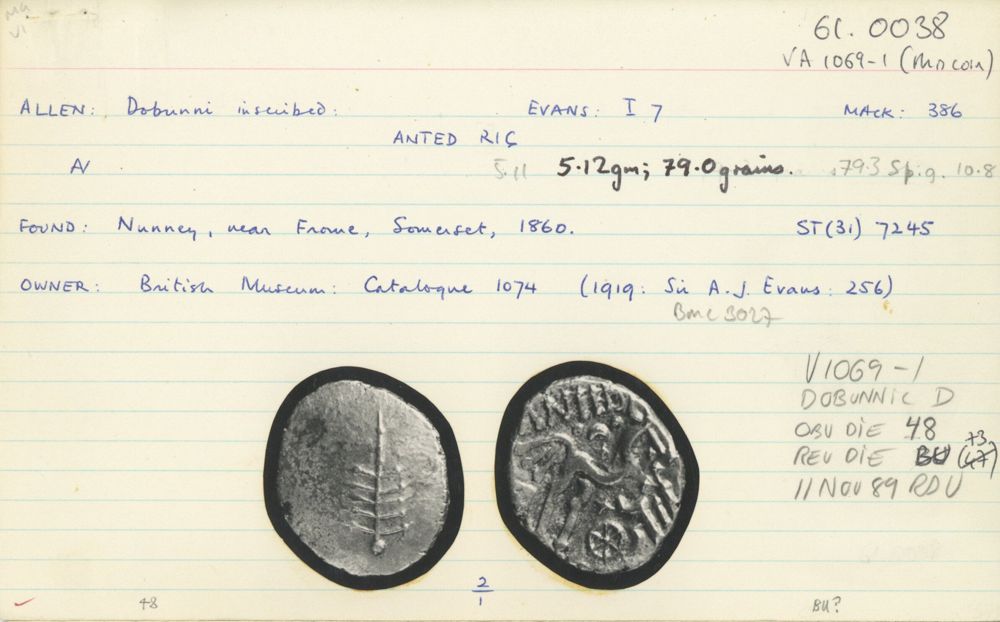 61. 0038
VA 1069-1 (this coin)
ALLEN: Dobunni inscribed: EVANS: I 7 MACK: 386
ANTED RIC
AV 5.11 5.12gm; 79.0 grains. 79.3 Sp.g. 10.8
FOUND: Nunney, near Frome, Somerset, 1860. ST(31) 7245
OWNER: British Museum: Catalogue 1074 (1919: Sir A.J. Evans: 256)
BMC 3027
V1069-1
DOBUNNIC D
OBV DIE 48
REV DIE BU (47) 73
11 NOV 89 RDV
2
1
48 BU?